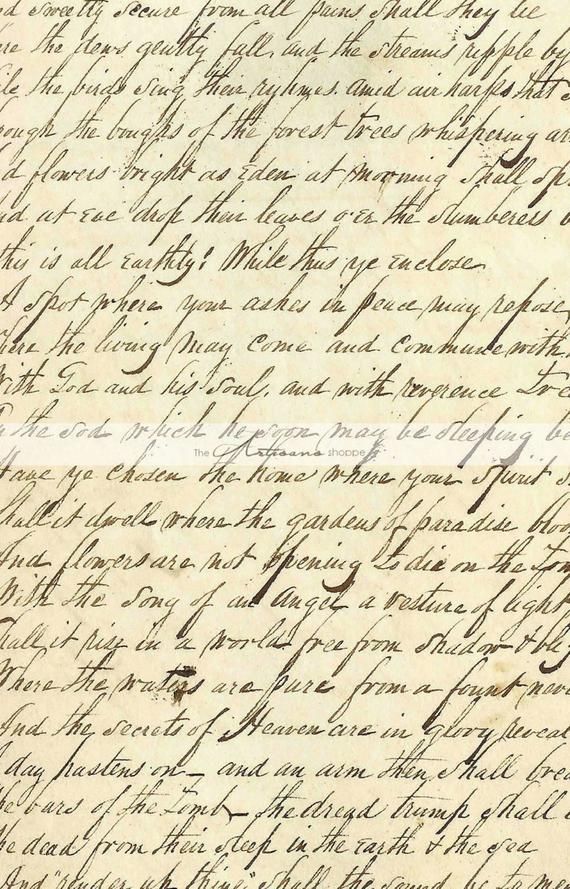 nd sweetly secure from all pains shall they lie
ere the dews gently fall, and the streams ripple by
ile the birds sing their ryhmes amid air harps that
rough the boughs of the forest trees whispering
d flowers bright as Eden at morning shall
nd at Eve drop their leaves o'Er the slumberers
this is all Earthly! While thus ye Enclose
A spot where your ashes in peace may repose
here the living may come and commune with
With God and his soul, and with reverence
the sod which he soon may be sleeping be
The Artisans shoppe
Have ye chosen the home where your spirit
Shall it dwell where the gardens of paradise bloo
And flowers are not opening to die on the Tom
With the song of an Angel a vesture of light
Shall it rise in a world free from shadow &
Where the waters are pure from a fount neve
And the secrets of Heaven are in glory reveal
day hastens on — and an arm then shall brea
he bars of the Tomb — the dread trump shall
he dead from their sleep in the Earth & the Sea
And "render up thine" shall the sound